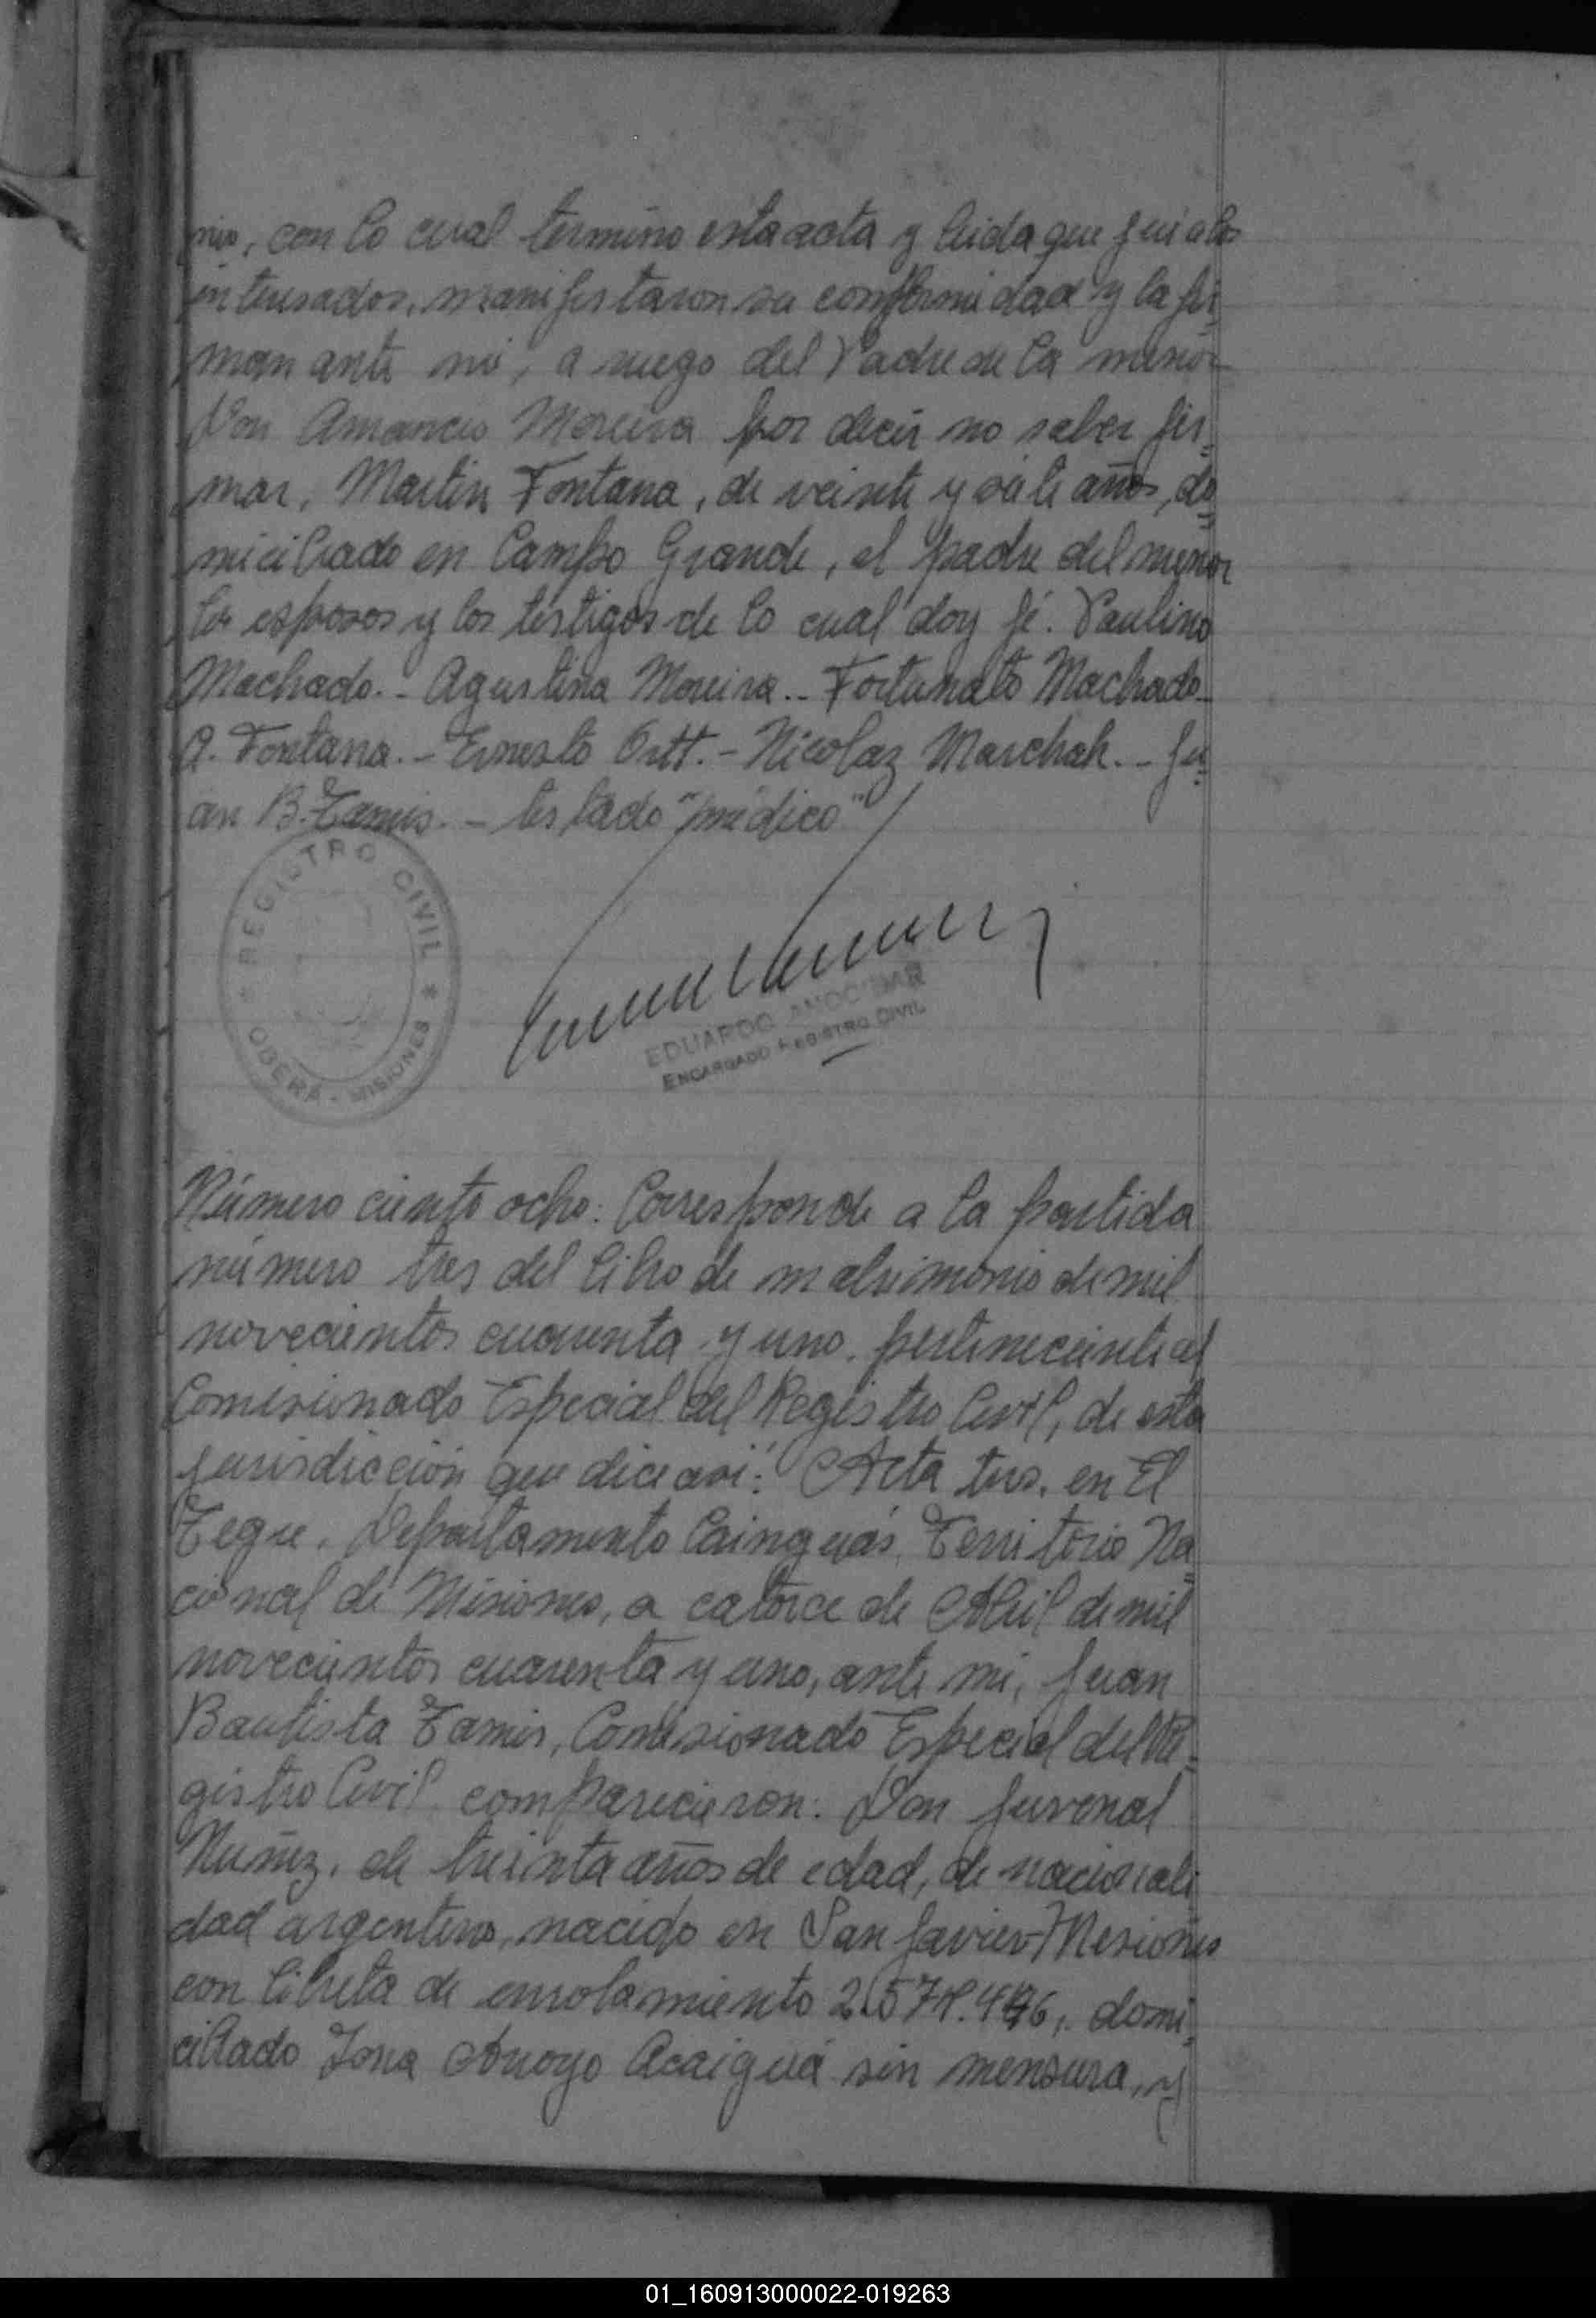 nio, con lo cual termino esta acta y leida que fué a los
interesados, manifestaron su conformidad y la fir
man ante mi, a ruego del Padre de la menor
Don Amancio Moreira por decir no saber fir_
mar, Martin Fontana, de veinte y siete años, do
miciliado en Campo Grande, el padre del menor
los esposos y los testigos de lo cual doy fé. Paulino
Machado.- Agustina Moreira.- Fortunato Machado_
A. Fontana.- Ernesto Ortt.- Nicolaz Marchak.- Ju
an B. Tamis.- testado "médico"
REGISTRO CIVIL
OBERÁ - MISIONES
EDUARDO ANDOCIDAR
ENCARGADO REGISTRO CIVIL
Número ciento ocho: Corresponde a la partida
número tres del libro de matrimonio de mil
novecientos cuarenta y uno. perteneciente al
Comisionado Especial del Registro Civil, de esta
jurisdiccion que dice asi: "Acta tres. en El
Tegue. Departamento Cainguás. Territorio Na
cional de Misiones, a catorce de Abril de mil
novecientos cuarenta y uno, ante mi, Juan
Bautista Tamis, Comisionado Especial del Re_
gistro Civil comparecieron: Don Juvenal
Nuñez. de treinta años de edad, de nacionali
dad argentino, nacido en San Javier-Misiones
con libreta de enrolamiento domi_
ciliado Zona Arroyo Acaiguá sin mensura, y
01_160913000022-019263